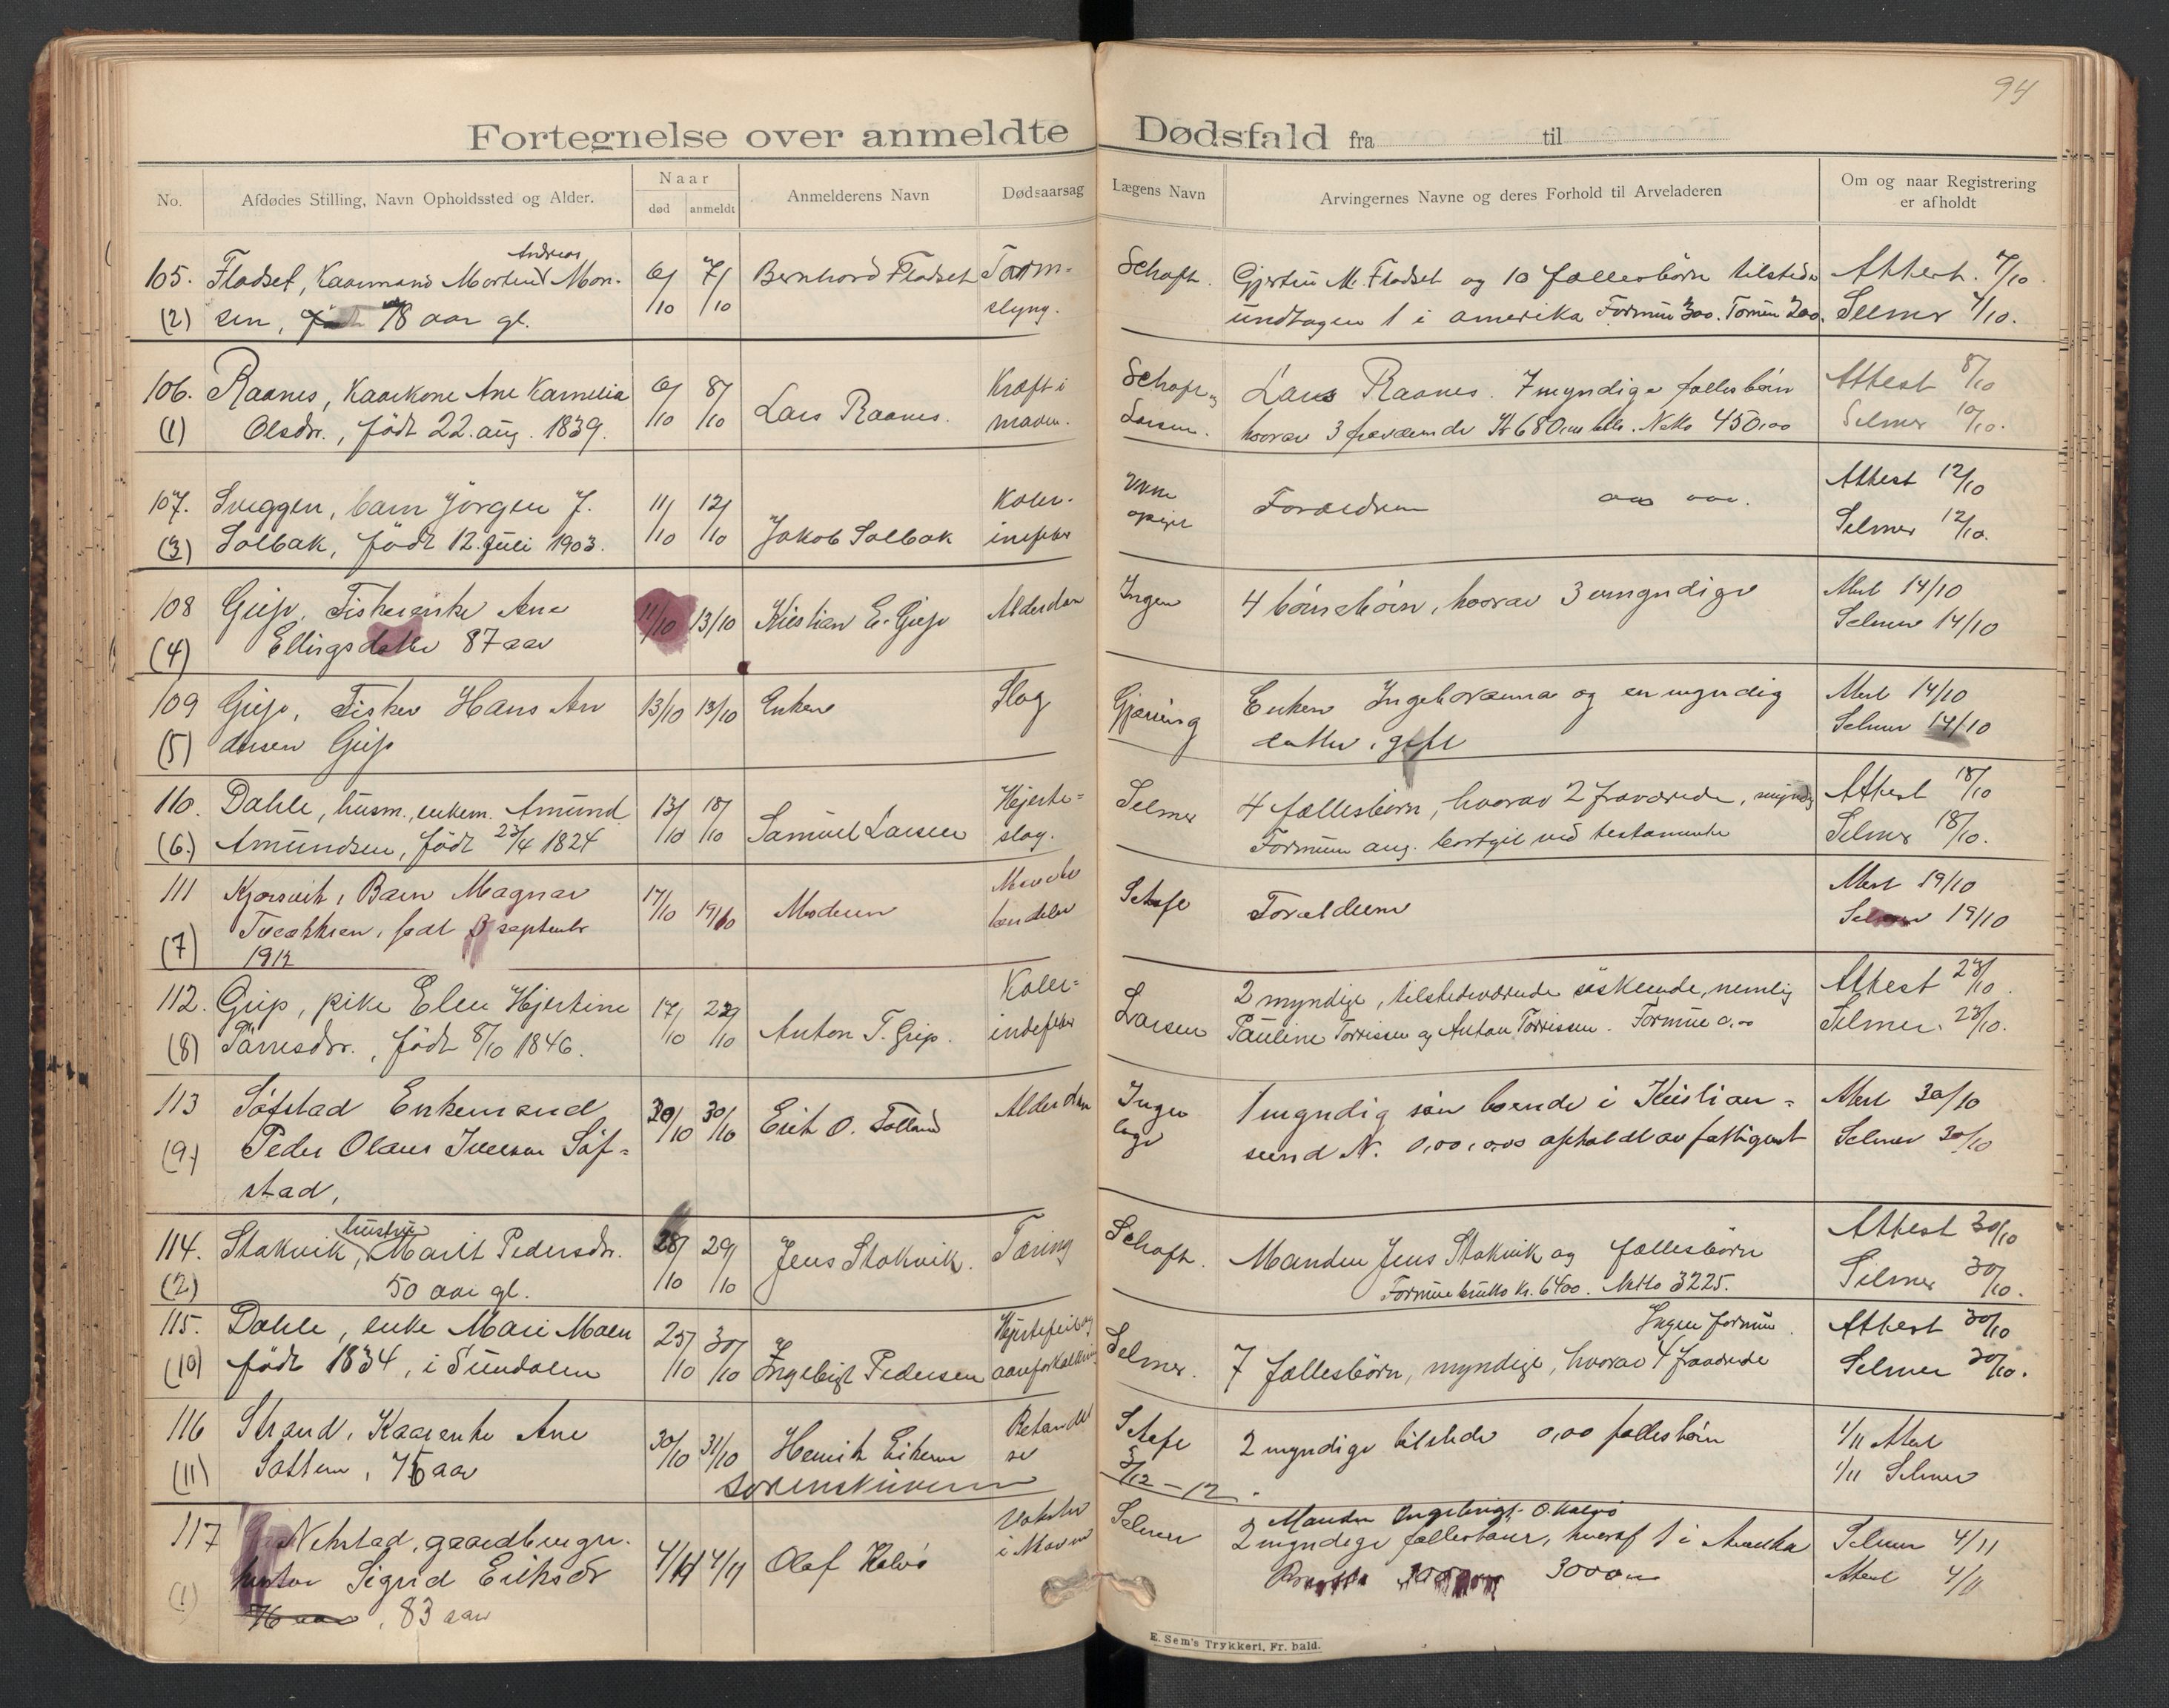 94
Fortegnelse over anmeldte Dødsfald fra til
No.
Afdødes Stilling, Navn Opholdssted og Alder.
Naar
død anmeldt
Anmelderens Navn
Dødsaarsag
Lægens Navn
Arvingernes Navne og deres Forhold til Arveladeren
Om og naar Registrering
er afholdt
105. Flodset, Kaarmand Morten Andreas Mon- 6/10 7/10 Bernhard Flodset Tarm-
(2) sen, 78 aar gl. slyng.
Schaft. Gjertru M. Flodset og 10 fællesbørn tilstede Attest. 7/10
undtagen 1 i amerika Formue 300. Selmer 7/10.
106. Raanes, Kaarkone Ane Karnelia 6/10 8/10 Lars Raanes. Kræft i
(1) Olsdr., født 22. aug. 1839. maven.
Schaft og Lars Raanes. 7 myndige fællesbørn Attest 8/10
Larsen. hvorav 3 fraværende Kr 680,00 Netto 450,00 Selmer 10/10.
107. Sveggen, barn Jørgen J. 11/10 12/10 Jakob Solbak Koler-
(3) Solbak, født 12. Juli 1903.
Forældrene Attest 12/10
Selmer 12/10.
108 Grip, Fiskerenke Ane 11/10 13/10 Kristian E. Grip Alderdom
(4) Ellingsdatter 87 aar
Ingen 4 børnebørn, hvorav 3 umyndige Attest 14/10
Selmer 14/10
109 Grip, Fisker Hans An 13/10 13/10 Enken Slag
(5) dersen Grip
Gjæring Enken Ingeborganna og en myndig Attest 14/10
datter, gift Selmer 14/10
110. Dahle, husm., enkem. Amund 13/10 18/10 Samuel Larsen Hjerte-
(6.) Amundsen, født 23/4 1824 slag.
Selmer 4 fællesbørn, hvorav 2 fraværende, myndig Attest 18/10
Formuen ang. bortgit ved testamente Selmer 18/10.
111 Kjørsvik, Barn Magnar 17/10 19/10 Moderen
(7) født 3 september
1912
Schaft Forældrene Attest 19/10
Selmer 19/10
112. Grip, pike Elen Hjertine 17/10 22/10 Anton T. Grip. Koler-
(8) Tørresdr., født 8/10 1846. indefeber
Larsen 2 myndige, tilstedeværende søskende, nemlig Attest 23/10.
Pauline Torrissen og Anton Torrissen. Formue 0,00 Selmer. 23/10.
113 Søfstad Enkemand 30/10 30/10 Erik O. Folland Alderdom
(9) Peder Olaus Iversen Søf-
stad,
Ingen 1 myndig søn boende i Kristian- Attest 30/10
læge sund N. 0,00 opholdt av fattigvæs Selmer 30/10
114. Stokvik, hustru Marit Pedersdr. 28/10 29/10 Jens Stokvik. Tæring
(2) 50 aar gl.
Schaft. Manden Jens Stokvik og fællesbørn Attest 30/10
Formue brutto kr. 6400. Netto 3225. Selmer 30/10.
115. Dahle, enke Mari Moen 25/10 30/10 Ingebrigt Pedersen Hjertefeil og
(10) født 1834, i Sundalen aareforkalkning
Selmer. Ingen formue. Attest 30/10
7 fællesbørn, myndige, hvorav 4 fraværende Selmer 30/10.
116 Strand, Kaarenke Ane 30/10 31/10 Henrik Eikrem
(11) Sattem, 75 aar
Sorenskriveren 3/12 - 12.
Schaft 2 myndige tilstede 0,00 fællesbørn 1/11 Attest
1/11 Selmer
117 Nekstad, gaardbruger- 4/11 4/11 Olaf Kalvø
(1) hustru Sigrid Eriksdr i Maven
76 aar, 83 aar
Selmer Manden Ingebrigt O. Kalvø
2 myndige fællesbørn, hvoraf 1 i Amerika Selmer 4/11
3000,00 Attest 4/11
E. Sem's Trykkeri, Fr. hald.